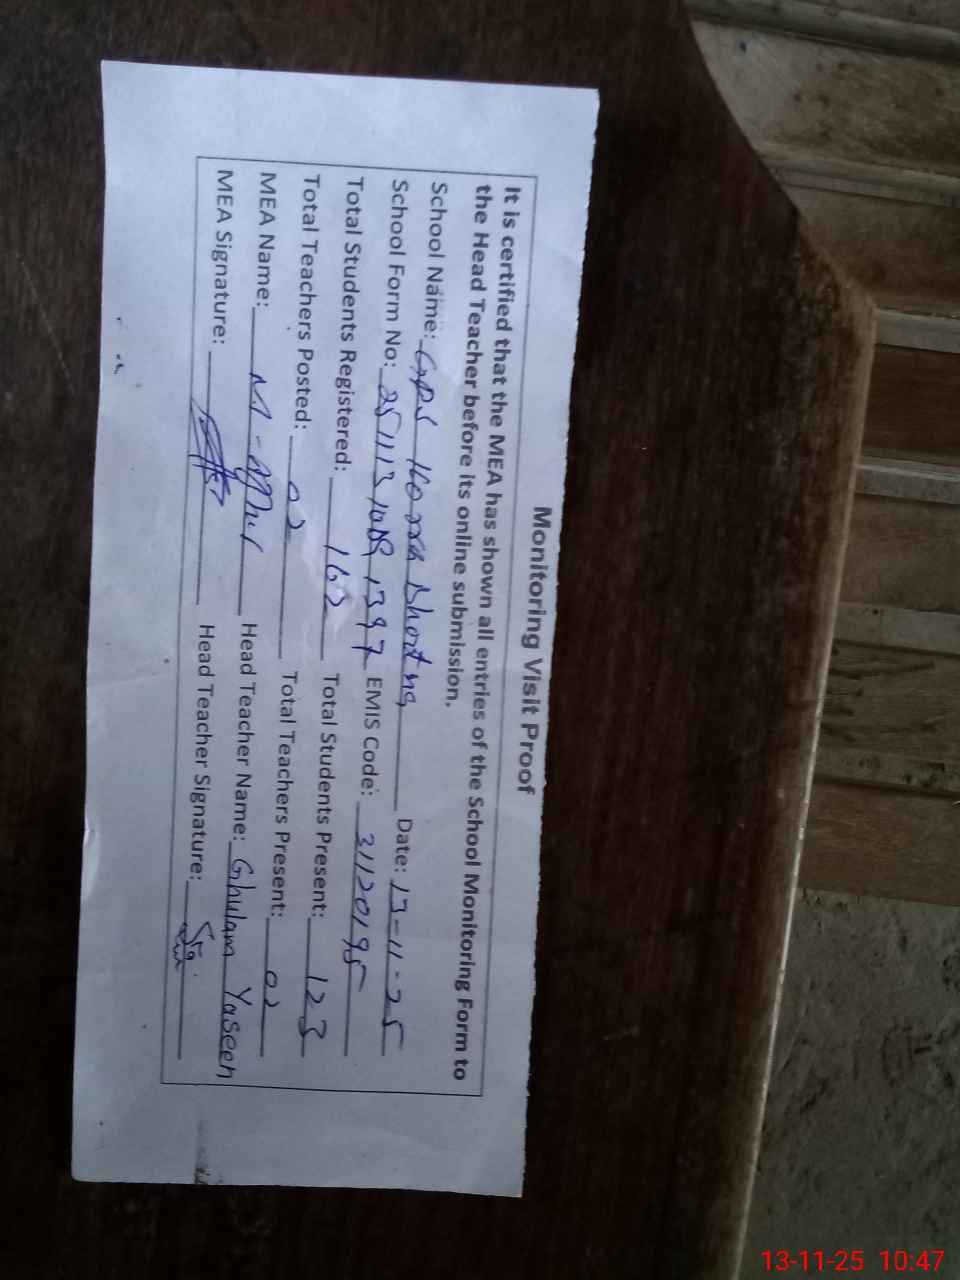 Monitoring Visit Proof
It is certified that the MEA has shown all entries of the School Monitoring Form to
the Head Teacher before its online submission.
School Name: GPS Date: 13-11-25
School Form No: EMIS Code: 31120195
Total Students Registered: 162 Total Students Present: 123
Total Teachers Posted: 02 Total Teachers Present: 02
MEA Name: M- Head Teacher Name: Ghulam Yaseen
MEA Signature: Head Teacher Signature:
13-11-25 10:47